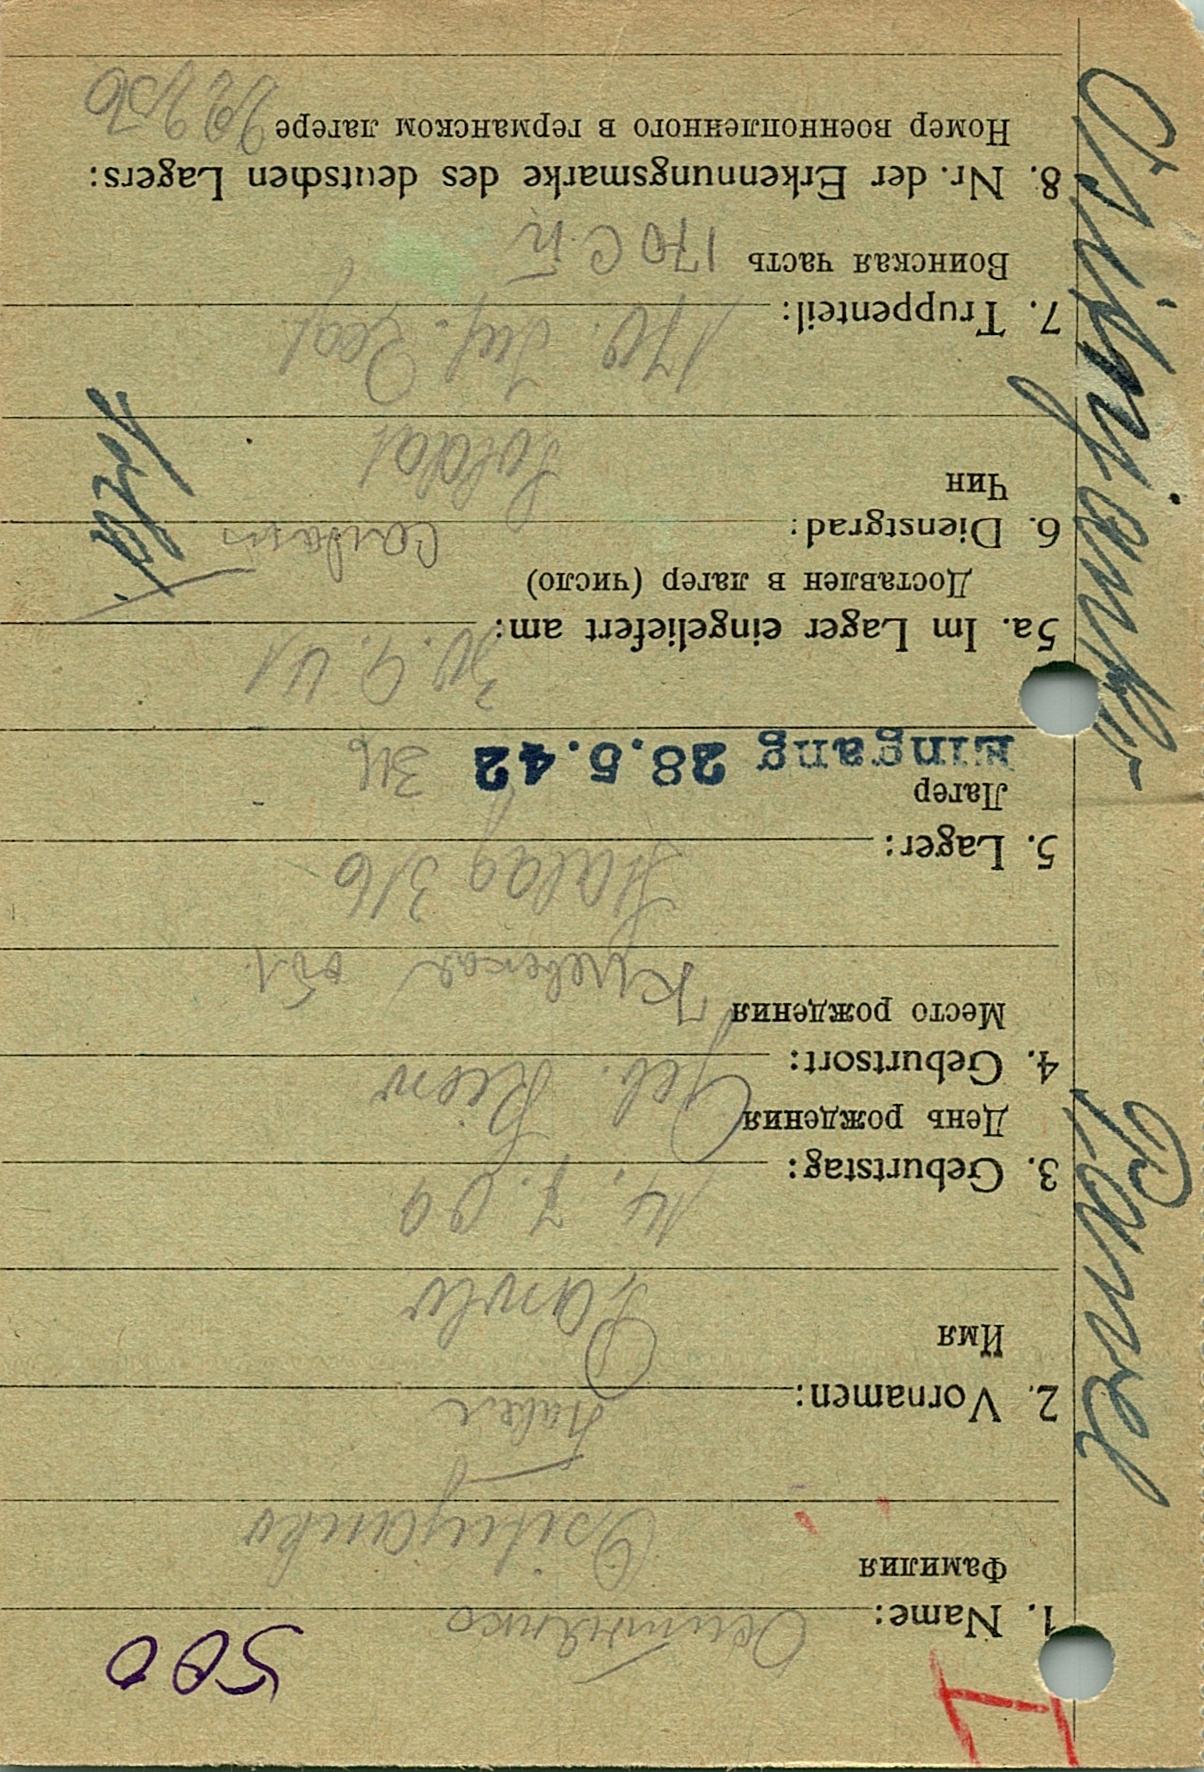 500
1. Name: Оситнянко
Фамилия
Ositnjanko
2. Vornamen: Павел
Имя
Pawlo
3. Geburtstag: 14. 7. 09
День рождения
4. Geburtsort: Geb. Kiew
Место рождения Киевская обл
5. Lager: Stalag 316
Лагер 316
Eingang 28.5.42
5a. Im Lager eingeliefert am: 30. 9. 41
Доставлен в лагер (число)
6. Dienstgrad: Солдат
Чин Soldat
Sold.
7. Truppenteil: 170. Inf. Regt.
Воинская часть 170 С. П
8. Nr. der Erkennungsmarke des deutschen Lagers:
Номер военнопленного в германском лагере
Ositnjanko
Pawel